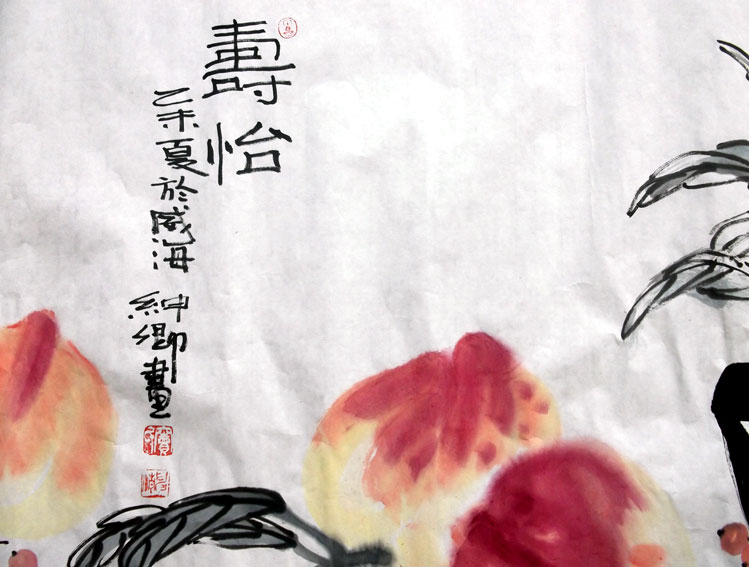 壽怡
乙未夏於威海
紳鄉畫